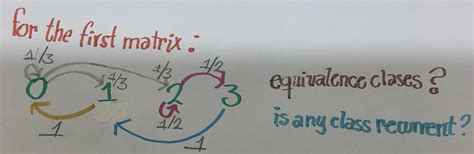 for the first matrix :
1/3 1/3 1/3 1/2
0 1 2 3
1 1/2 1
equivalence clases ?
is any class recurrent ?